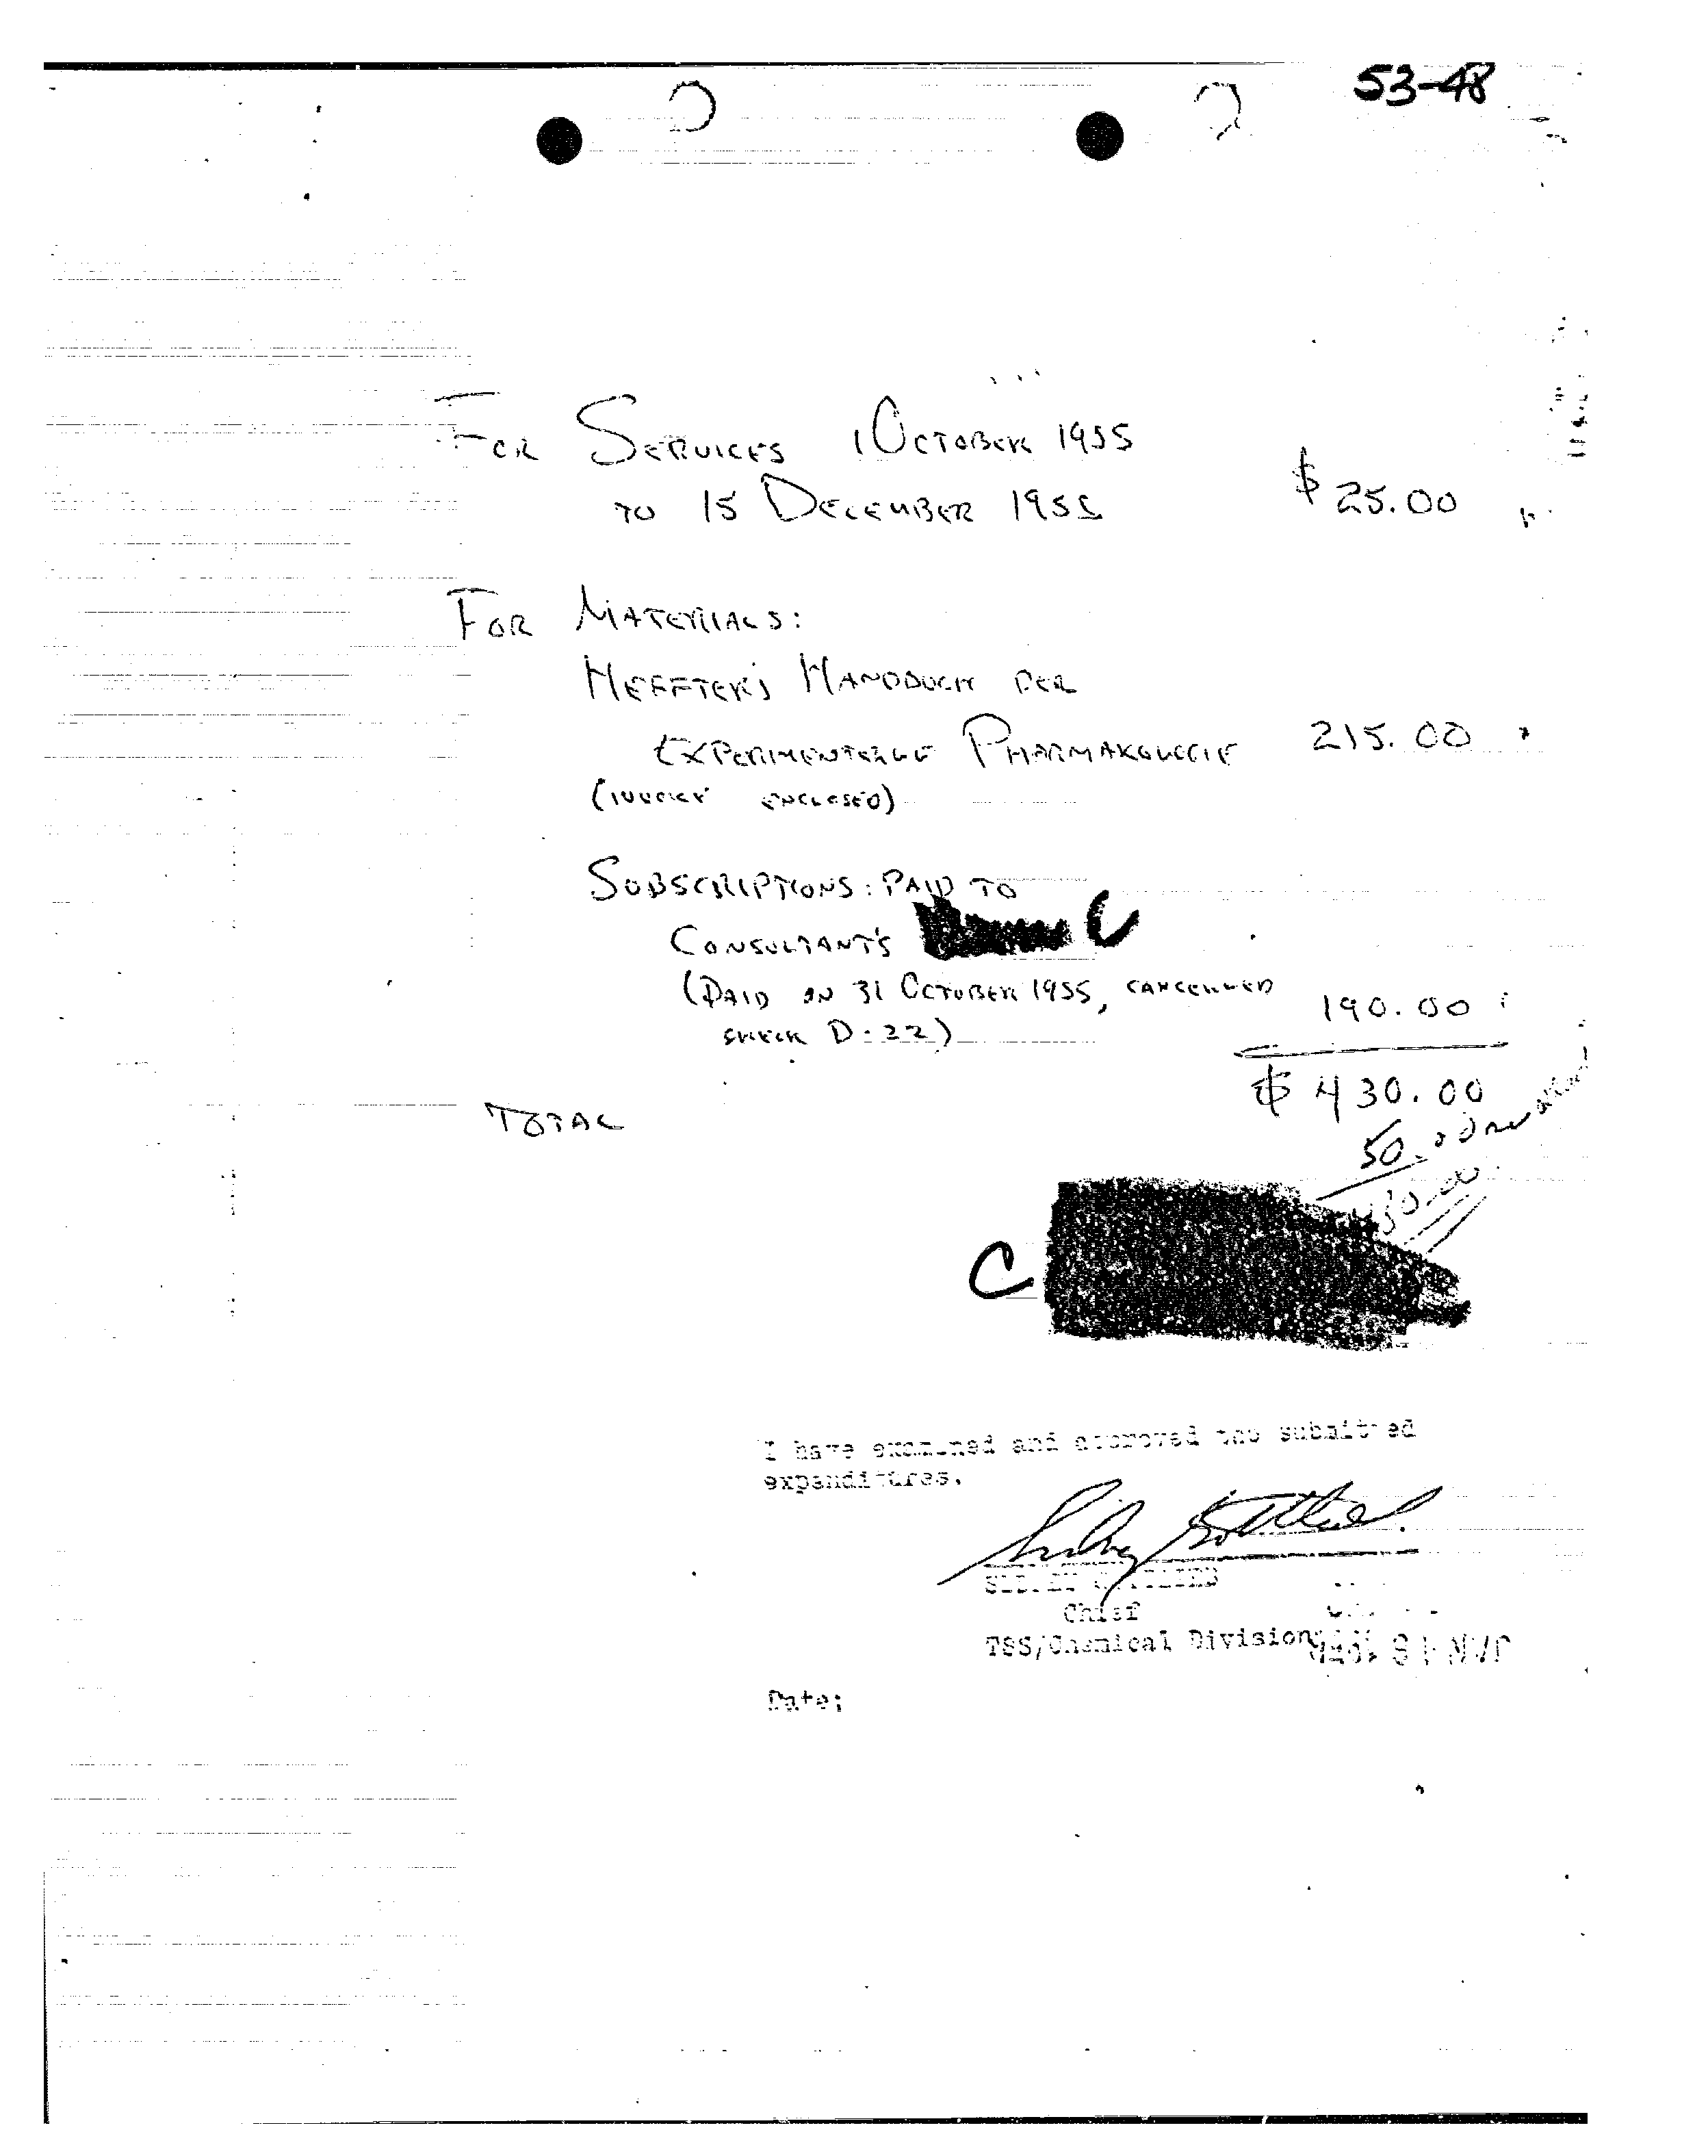 53-48
FOR SERVICES 1 OCTOBER 1955
TO 15 DECEMBER 1955 $ 25.00
FOR MATERIALS:
HEFFTER'S HANDBUCH DER
EXPERIMENTELLE PHARMAKOLOGIE 215.00
(INVOICE ENCLOSED)
SUBSCRIPTIONS: PAID TO
CONSULTANT'S C
(PAID ON 31 OCTOBER 1955, CANCELLED 190.00
CHECK D-22)
TOTAL $ 430.00
50.00
C
I have examined and approved the submitted
expenditures.
Sidney Gottlieb
SIDNEY GOTTLIEB
Chief
TSS/Chemical Division
Date: